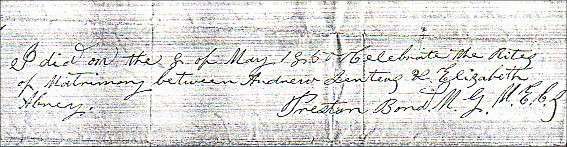 I did on the 8 of May 1865 Celebrate the Rites
of Matrimony between Andrew & Elizabeth
Abney.
Preston Bond M. G. M. E. C. S